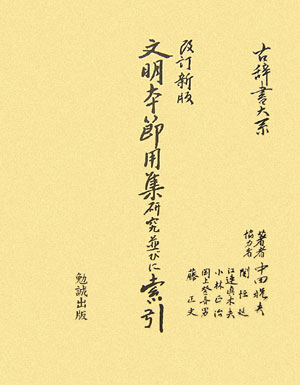 古辞書大系
改訂新版
文明本節用集研究並びに索引
著者 中田祝夫
協力者 関恒延
江連真木夫
小林正治
岡上登喜男
藤正史
勉誠出版